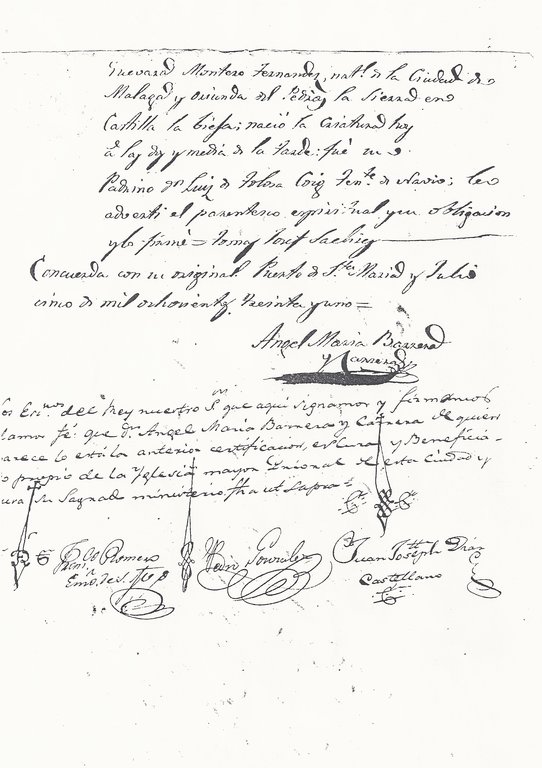 Guevara Montero Fernandez, natl. de la Ciudad de
Malaga y oriunda del la Sierra en
Castilla la bieja; nació la criatura hoy
a las dos y media de la tarde: fué su
Padrino dn. Luiz de Tolosa Tente. de Navio; le
adverti el parentesco espiritual y su obligacion
y lo firmé = Tomas Josef Sanchez
Concuerda con su original. Puerto de Sta. Maria y Julio
cinco de mil ochocients. treinta y uno =
Angel Maria Barrera
y Carrera
los Ecnos. del Rey nuestro Sr. que aquí signamos y firmamos
damos fé: que Dn. Angel Maria Barrera y Carrera de quien
parece lo está la anterior certificacion, es Cura y Beneficia-
o propio de la Yglesia mayor Prioral de esta Ciudad y
su Sagrado ministerio fha ut supra =
Fco. Romero
Juan Gonzalez
Juan Joseph Diaz
Castellano